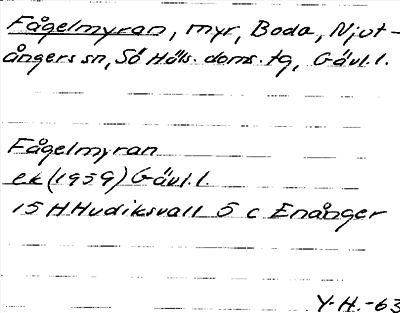 Fågelmyran, myr, Boda, Njut-
ångers sn, Sö Häls. doms. tg, Gävl. l.
Fågelmyran
ek (1959) Gävl. l.
15 H Hudiksvall 5 c Enånger
Y. H. -63